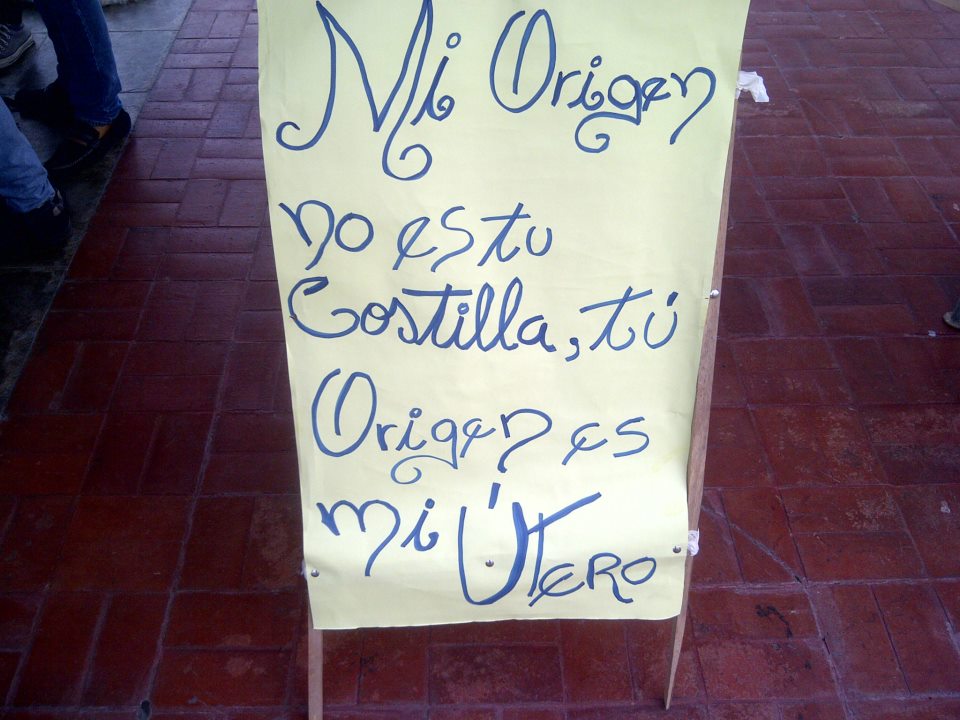 Mi Origen
no es tu
Costilla, tú
Origen es
mi ÚTERO